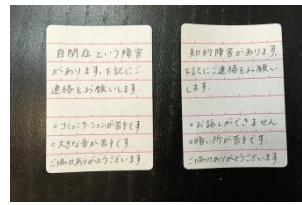 自閉症という障害
があります。下記にご
連絡をお願いします。
○コミュニケーションが苦手です
○大きな音が苦手です
ご協力ありがとうございます
知的障害があります。
下記にご連絡をお願い
します。
○お話しができません
○暗い所が苦手です
ご協力ありがとうございます